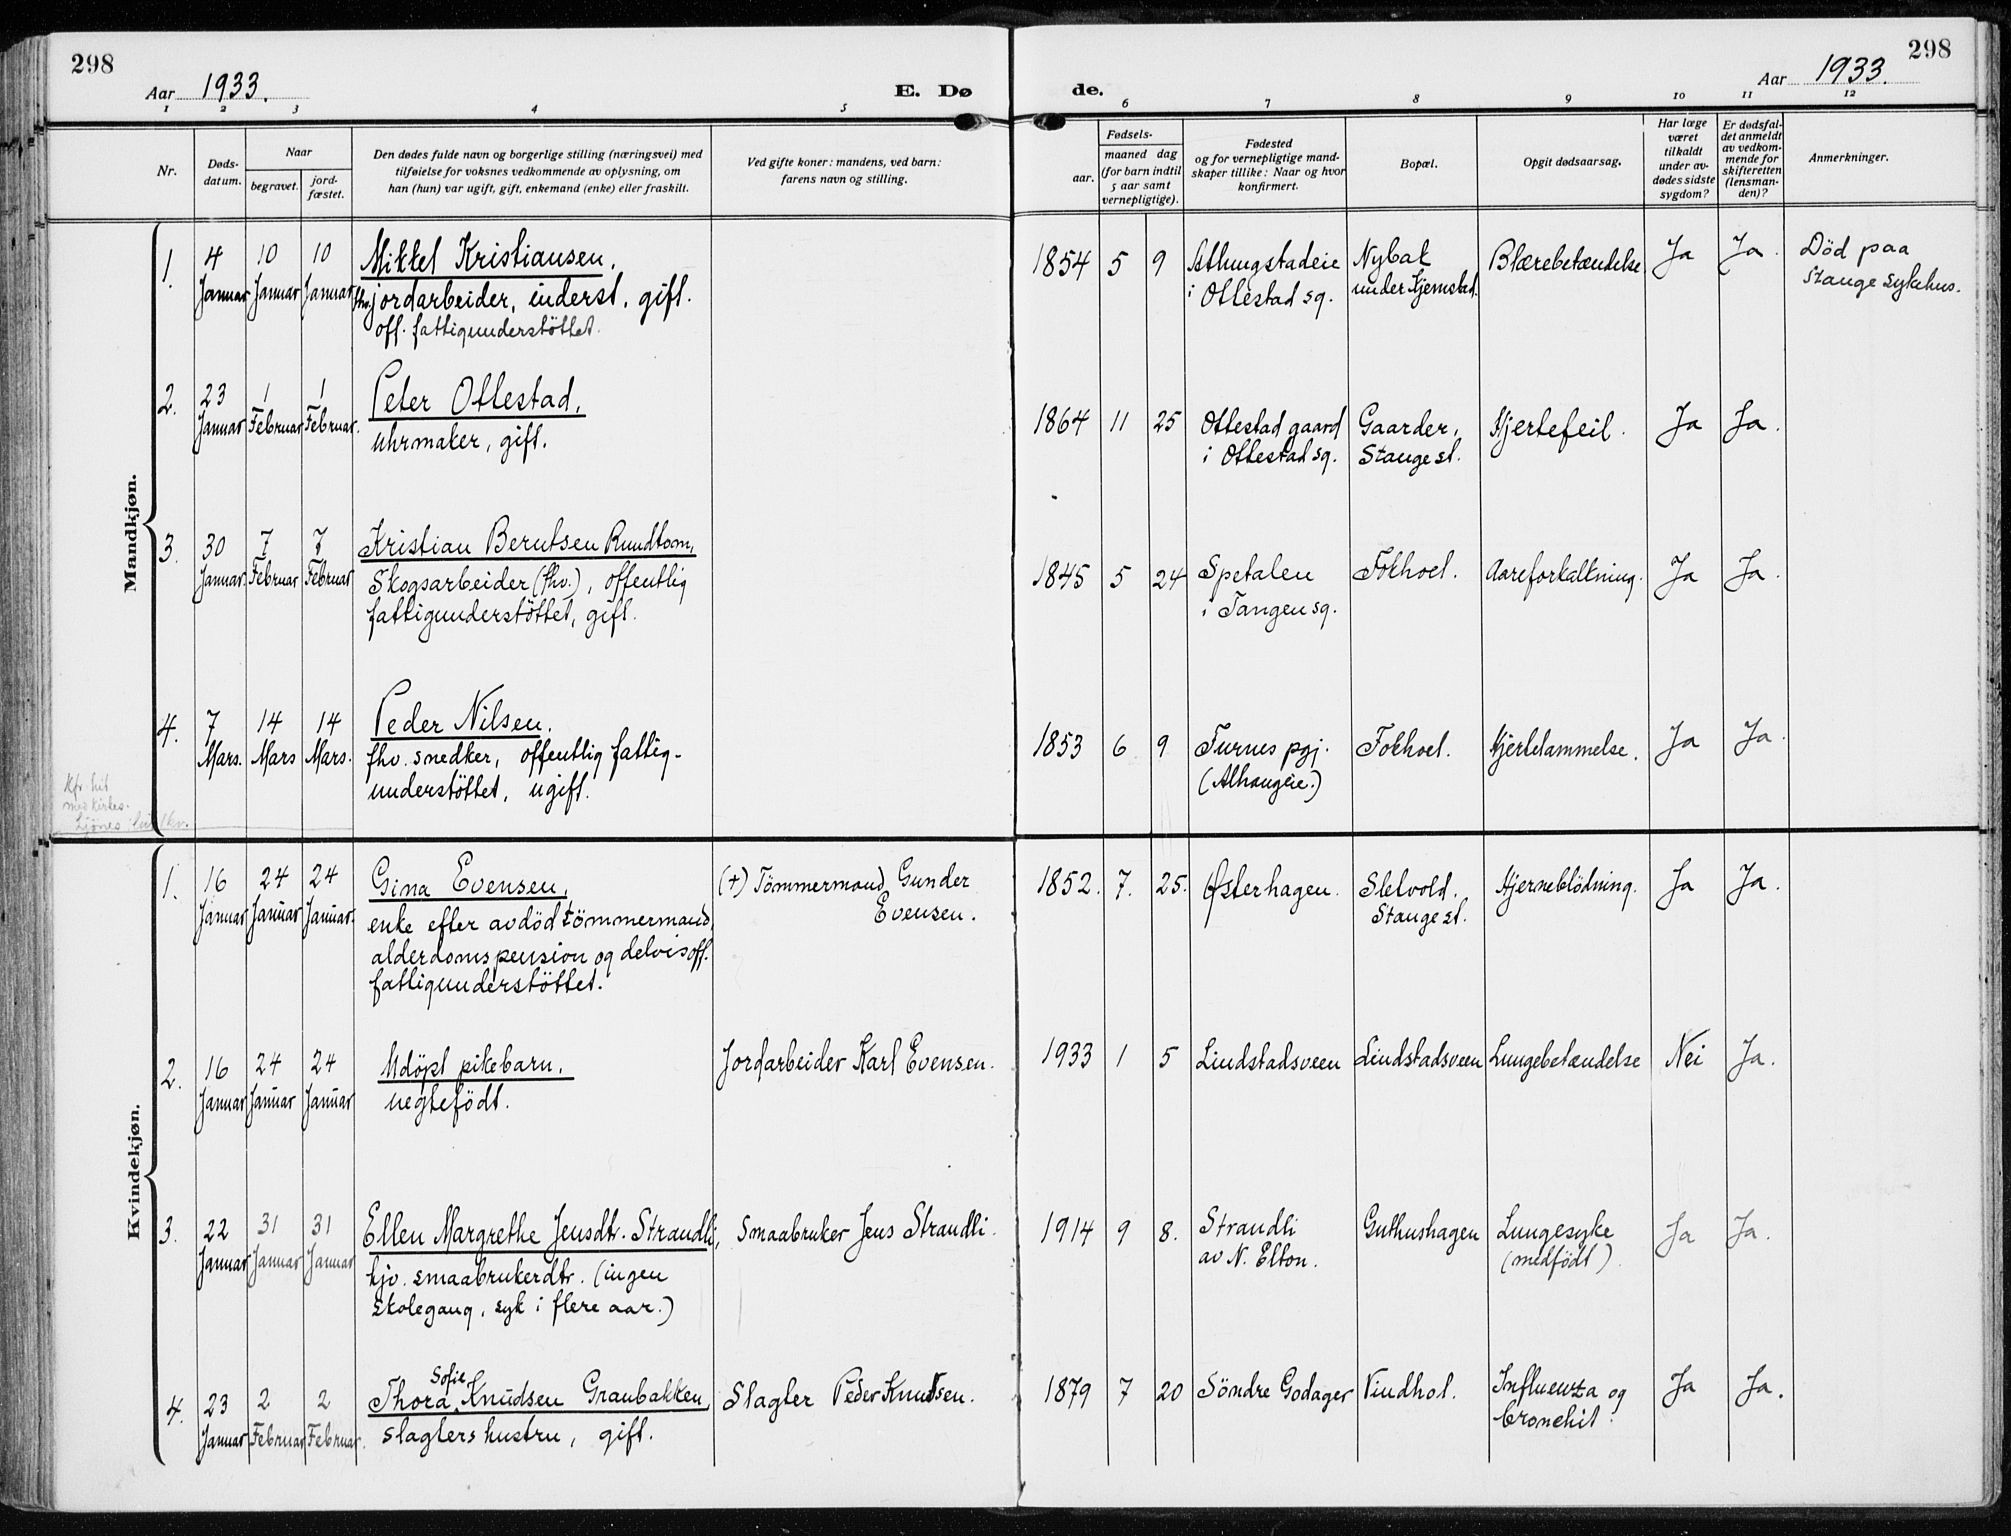 298
Aar 1933.
E. Dø
de.
Aar 1933.
298
1 2 3 4 5 6 7 8 9 10 11 12
Nr.
Døds-
datum.
Naar
begravet.
jord-
fæstet.
Den dødes fulde navn og borgerlige stilling (næringsvei) med
tilføielse for voksnes vedkommende av oplysning, om
han (hun) var ugift, gift, enkemand (enke) eller fraskilt.
Ved gifte koner: mandens, ved barn:
farens navn og stilling.
Fødsels-
aar.
maaned dag
(for barn indtil
5 aar samt
vernepligtige).
Fødested
og for vernepligtige mand-
skaper tillike: Naar og hvor
konfirmert.
Bopæl.
Opgit dødsaarsag.
Har læge
været
tilkaldt
under av-
dødes sidste
sygdom?
Er dødsfal-
det anmeldt
av vedkom-
mende for
skifteretten
(lensman-
den)?
Anmerkninger.
Mandkjøn.
1. 4 Januar 10 Januar 10 Januar
Mikkel Kristiansen,
fhv. jordarbeider, inderst, gift.
off. fattigunderstöttet.
1854 5 9
i Ottestad sg.
Nybak
under Hjemstad.
Blærebetændelse
Ja Ja.
Död paa
Stange sykehus.
2. 23 Januar 1 Februar 1 Februar.
Peter Ottestad,
uhrmaker, gift.
1864 11 25
Ottestad gaard
i Ottestad sg.
Gaarder,
Stange st.
Hjertefeil.
Ja Ja.
3. 30 Januar. 7 Februar 7 Februar
Kristian Berntsen Rundtom,
Skogsarbeider (fhv.), offentlig
fattigunderstöttet, gift.
1845 5 24
Spetalen
i Tangen sg.
Fokhoel.
Aareforkalkning.
Ja Ja.
4. 7 Mars. 14 Mars 14 Mars.
Peder Nilsen,
fhv. snedker, offentlig fattig-
understöttet, ugift.
1853 6 9
Furnes pgj.
(Alhaugeie.)
Fokhoel.
Hjertelammelse.
Ja Ja.
Kfr. hit
Kvindekjøn.
1. 16 Januar 24 Januar 24 Januar.
Gina Evensen,
enke efter avdöd tömmermand,
alderdomspension og delvis off.
fattigunderstöttet.
(+) Tömmermand Gunder
Evensen.
1852. 7. 25.
Østerhagen.
Sletvold.
Stange st.
Hjerneblödning.
Ja Ja.
2. 16 Januar 24 Januar 24 Januar
Udöpt pikebarn,
uegtefödt.
Jordarbeider Karl Evensen.
1933 1 5
Lindstadsveen
Lindstadsveen
Lungebetændelse
Nei Ja.
3. 22 Januar 31 Januar 31 Januar
Ellen Margrethe Jensdtr. Strandli,
hjv. smaabrukerdtr. (ingen
skolegang, syk i flere aar.)
Smaabruker Jens Strandli.
1914 9 8.
Strandli
av N. Elton.
Guthushagen
Lungesyke
(medfödt).
Ja Ja.
4. 23 Januar 2 Februar 2 Februar.
Sofie
Thora Knudsen Granbakken,
slagters hustru, gift.
Slagter Peder Knudsen.
1879 7 20
Söndre Godager
Vindhol.
Influenza og
bronchit.
Ja Ja.